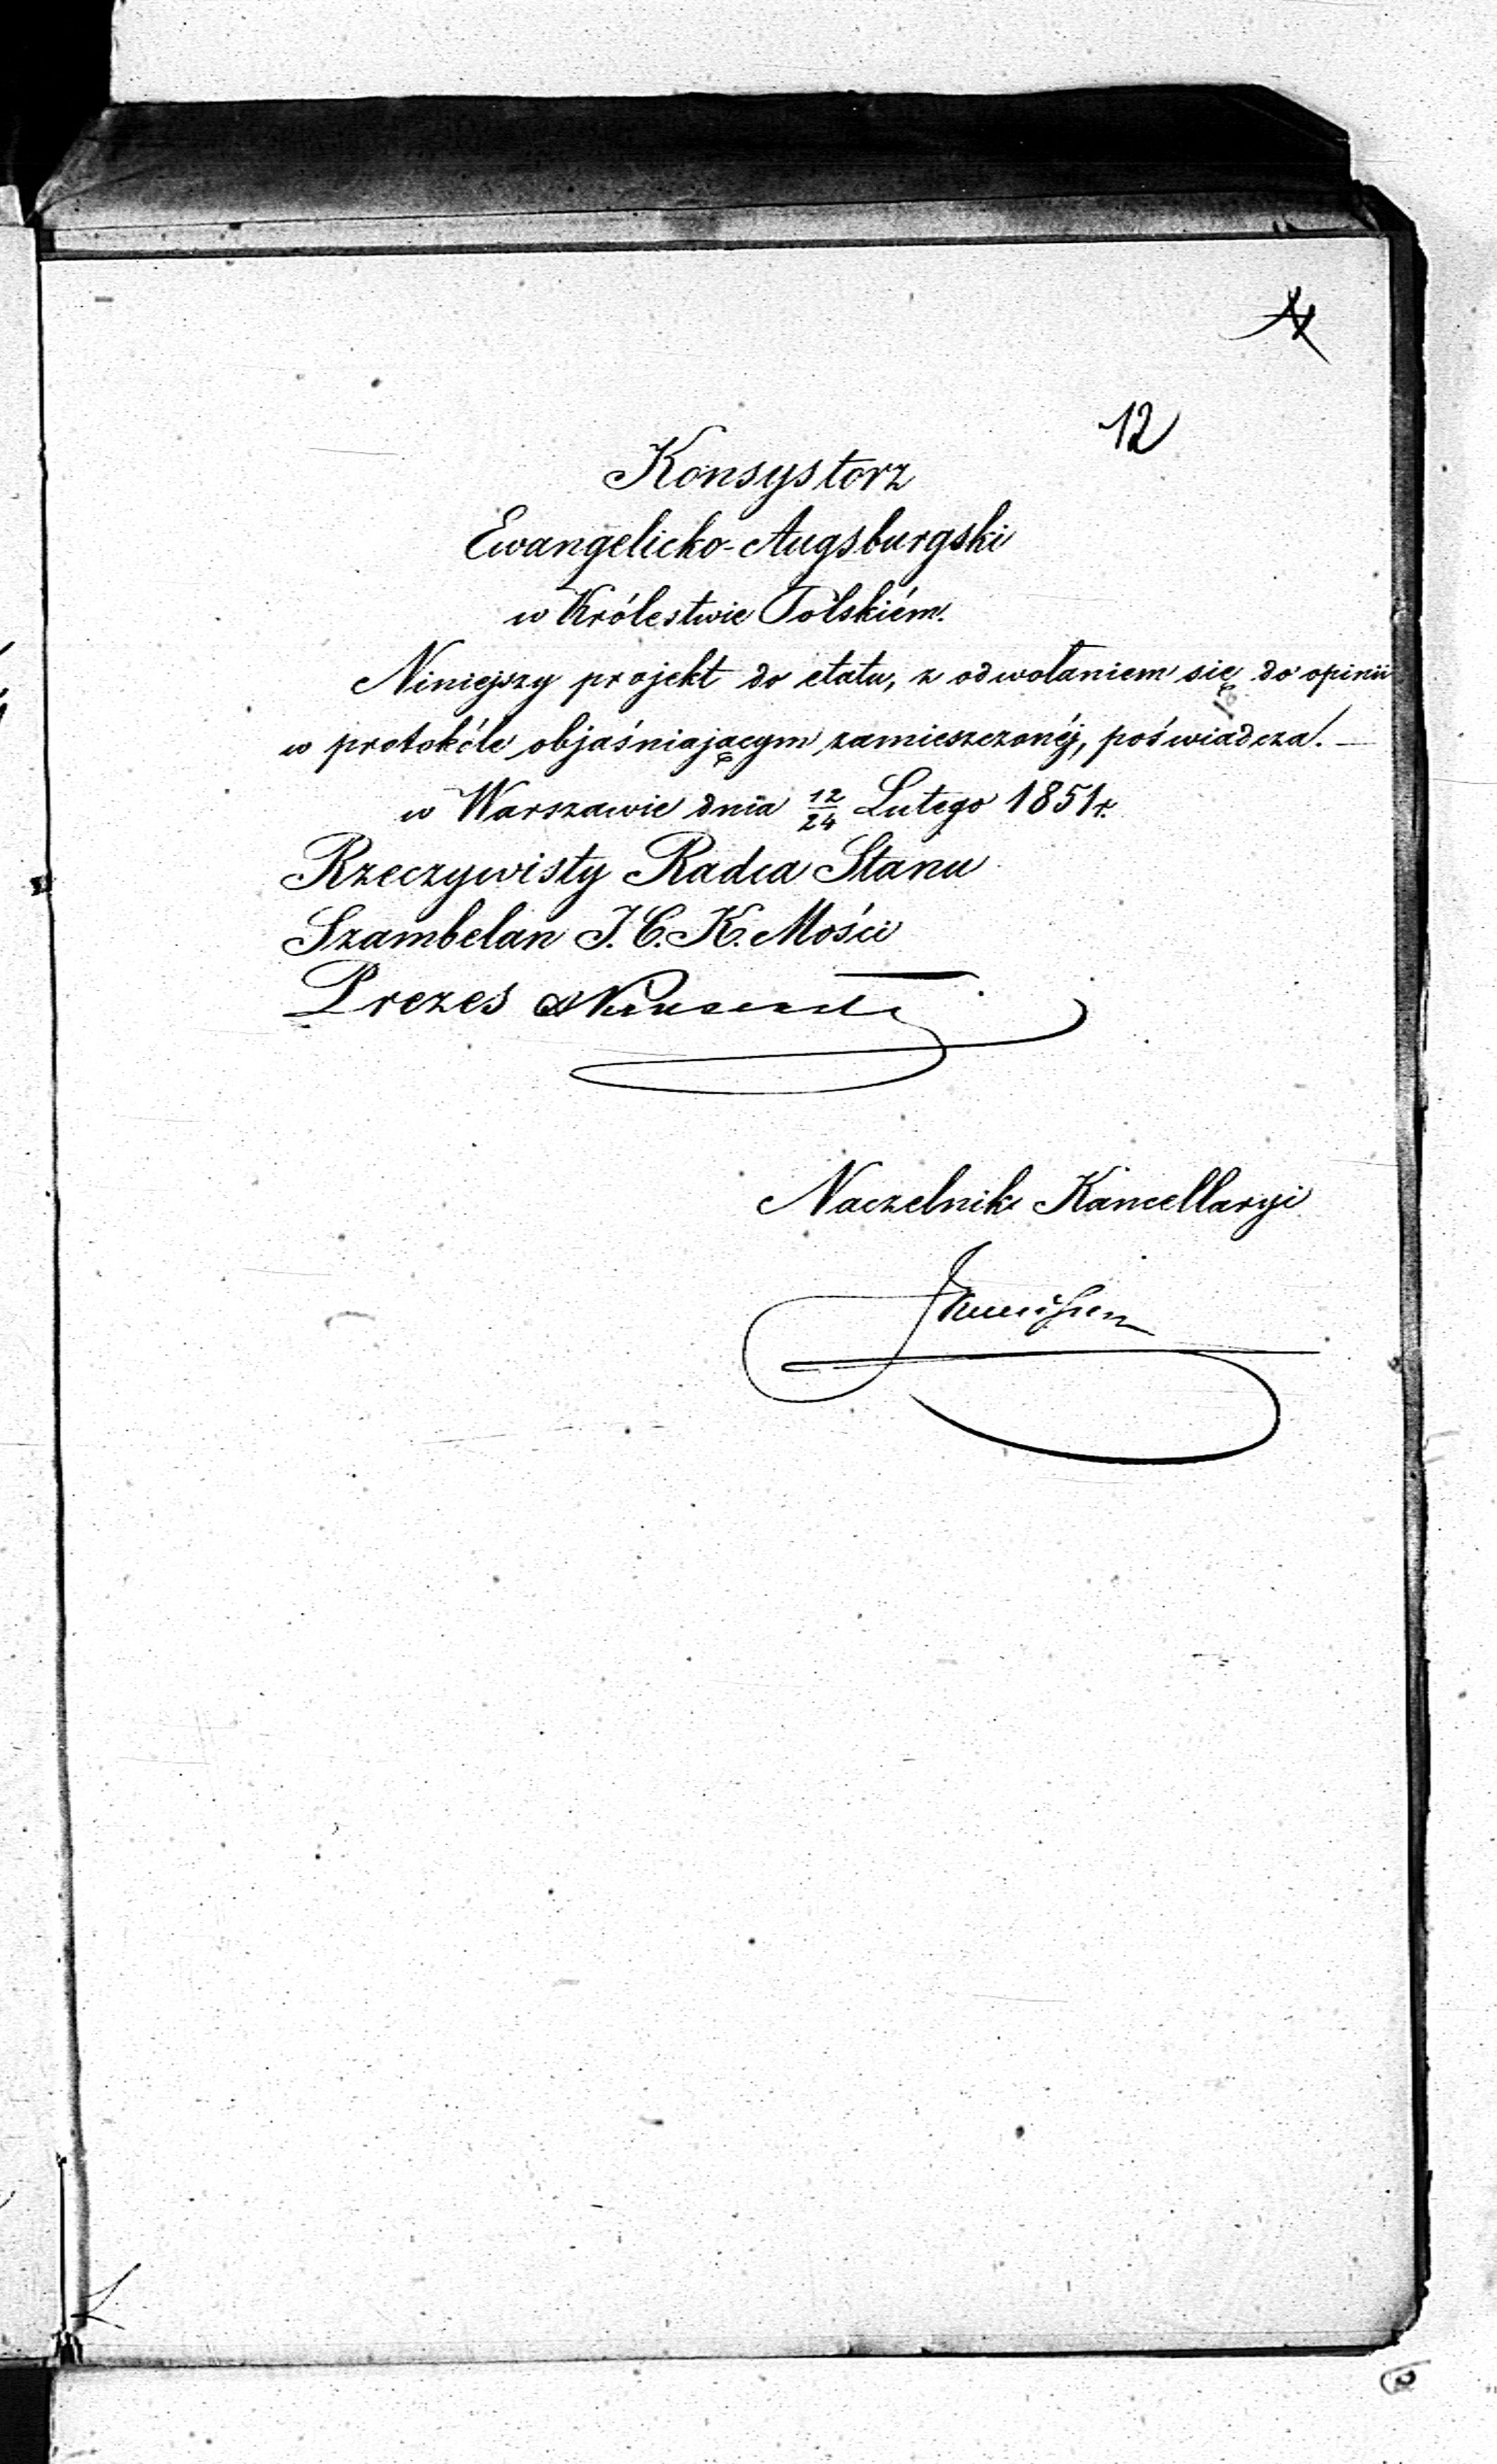 12
Konsystorz
Ewangelicko-Augsburgski
w Królestwie Polskiém.
Niniejszy projekt do etatu, z odwołaniem się do opinii
w protokóle objaśniającym zamieszczonéj, poświadcza. —
w Warszawie dnia 12/24 Lutego 1851 r.
Rzeczywisty Radca Stanu
Szambelan J. C. K. Mości
Prezes
Naczelnik Kancellaryi